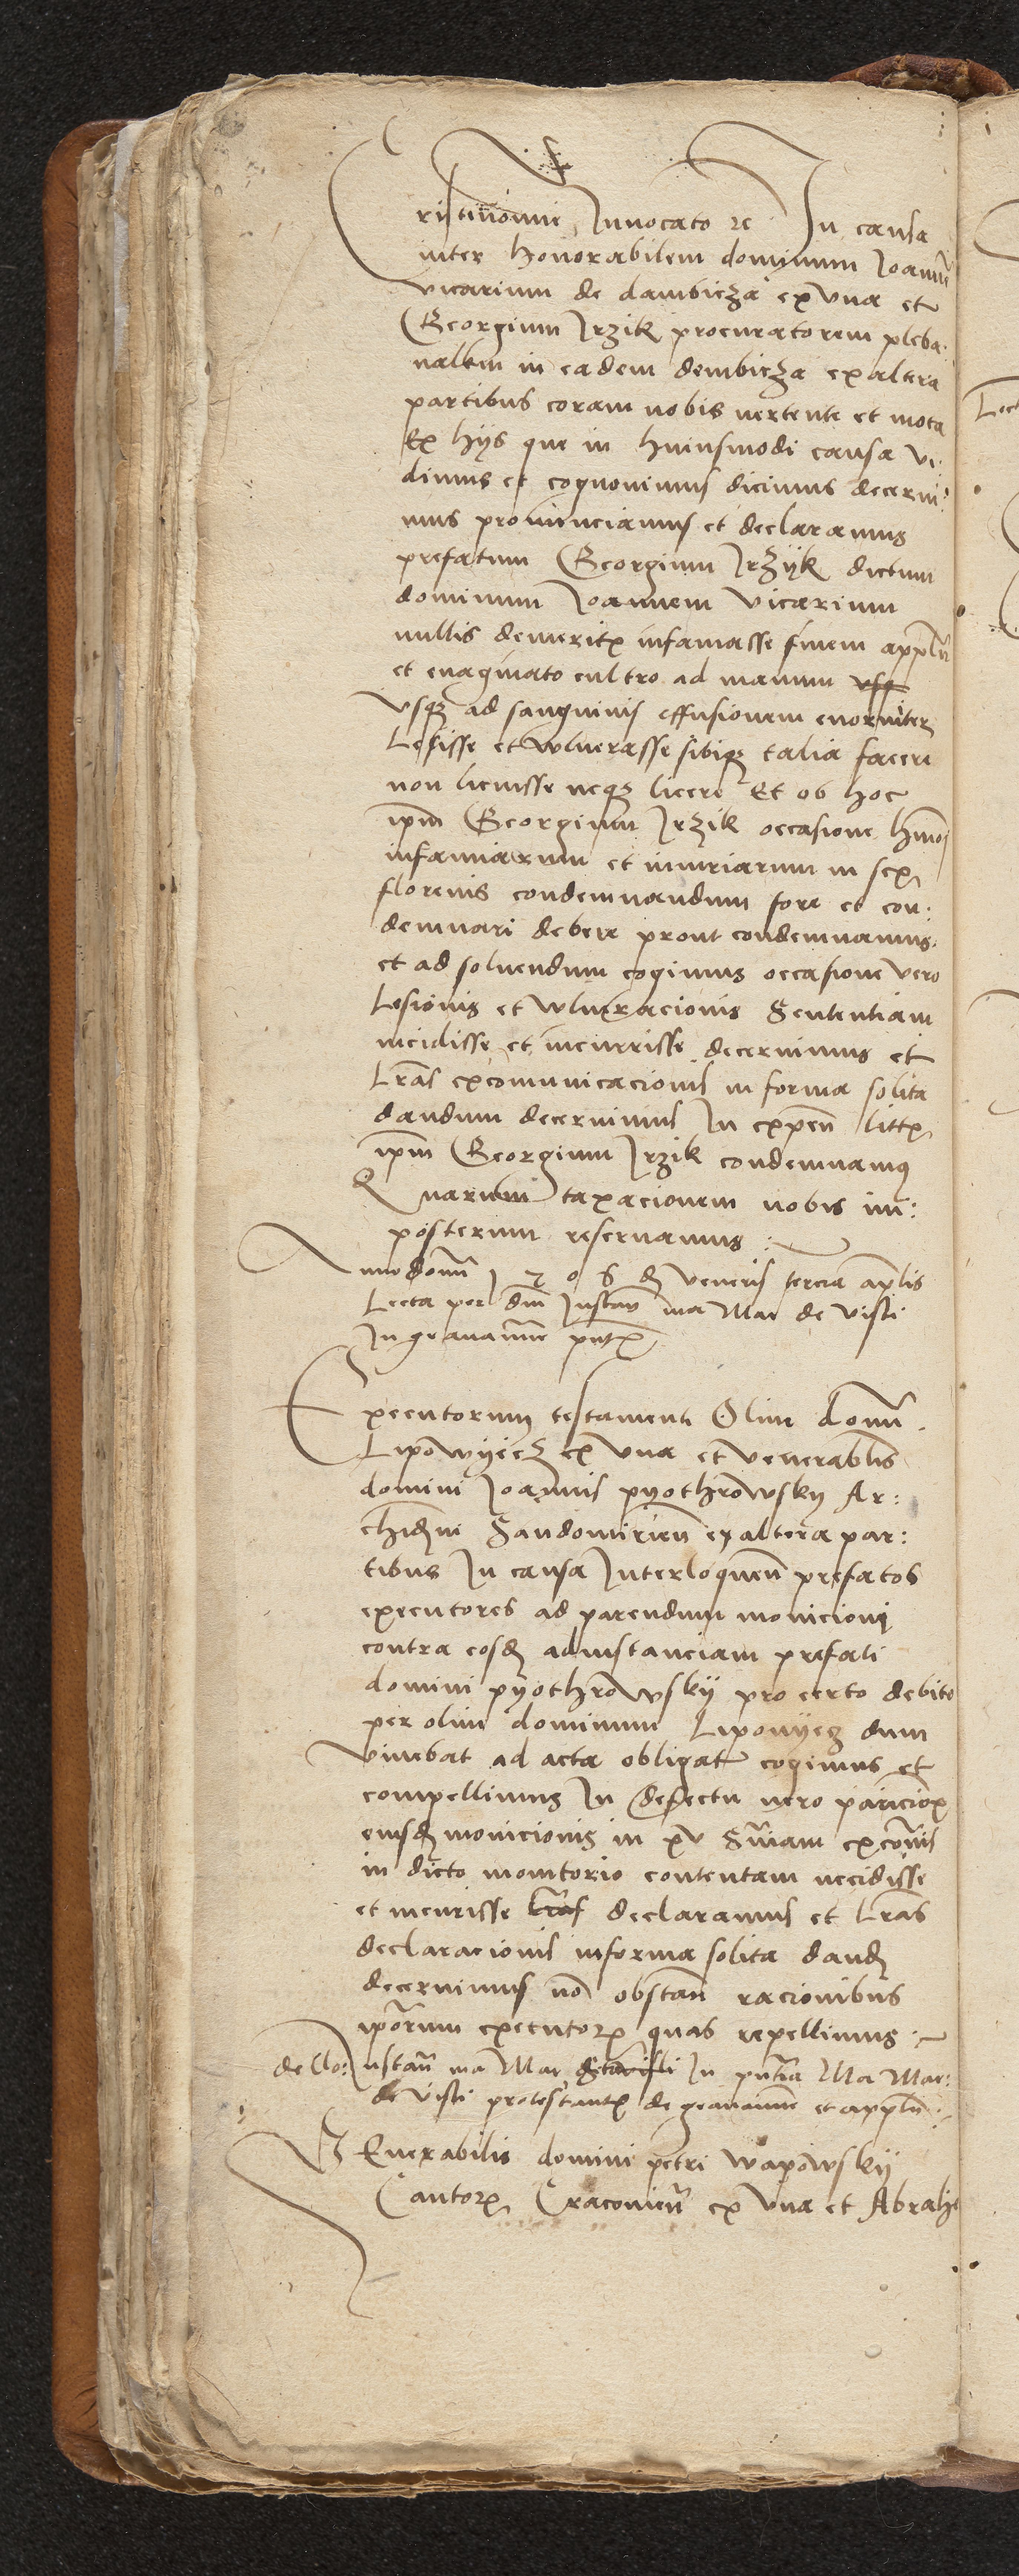 Cristi nomine Invocato etc In causa
inter honorabilem dominum Joannē
vicarium de dambicza ex vna et
Georgium Irzik procuratorem pleba-
nalem in eadem dembicza ex altera
partibus coram nobis vertente et mota
Ex hijs que in huiusmodi causa vi:
dimus et cognouimus dicimus decerni:
mus pronunciamus et declaramus
prefatum Georgium Irzijk dictum
dominum Joannem vicarium
nullis demeritis infamasse
et euaginato cultro ad manum vsq
vsq ad sanguinis effusionem enormiter
Lesisse et wlnerasse sibiq talia facere
non licuisse neq licere Et ob hoc
ipm Georgium Irzik occasione hmoi
infamiarum et iniuriarum in sex
florenis condemnandum fore et con:
demnari debere prout condemnamus
et ad soluendum cogimus occasione vero
Lesionis et wlneracionis Sententiam
incidisse et incurrisse decernimus et
Lrās excomunicacionis in forma solita
dandum decernimus In expen litis
ipm Georgium Irzik condemnamus
Quarum taxacionem nobis im:
posterum reseruamus
Anno domī 1506 d veneris tercia aplis
Lecta per dm Instan ma Mar de visli
In grauamine
Executorum testamenti Olim domi
Lipowijecz ex vna et venerablis
domini Joannis pyothrowsky Ar:
chidni Sandomirien ex altera par:
tibus In causa Interloquen prefatos
executores ad parendum monicioni
contra eosd ad instanciam prefati
domini pyothrowskij pro certo debito
per olim dominum Lipouijeg dum
viuebat ad acta obligat cogimus et
compellimus In defectu vero paricionis
eiusd monicionis in xv Sniam exconis
in dicto monitorio contentam incidisse
et incurisse lras declaramus et Lrās
declaracionis in forma solita dand
decernimus nō obstan racionibus
ipōrum executorum quas repellimus
de Clo: Instan ma Mar In pntia Ma Mar:
de visli protestantis de grauamine et appln
VEnerabilis domini petri wapowskij
Cantoris Cracouien ex vna et Abrahe